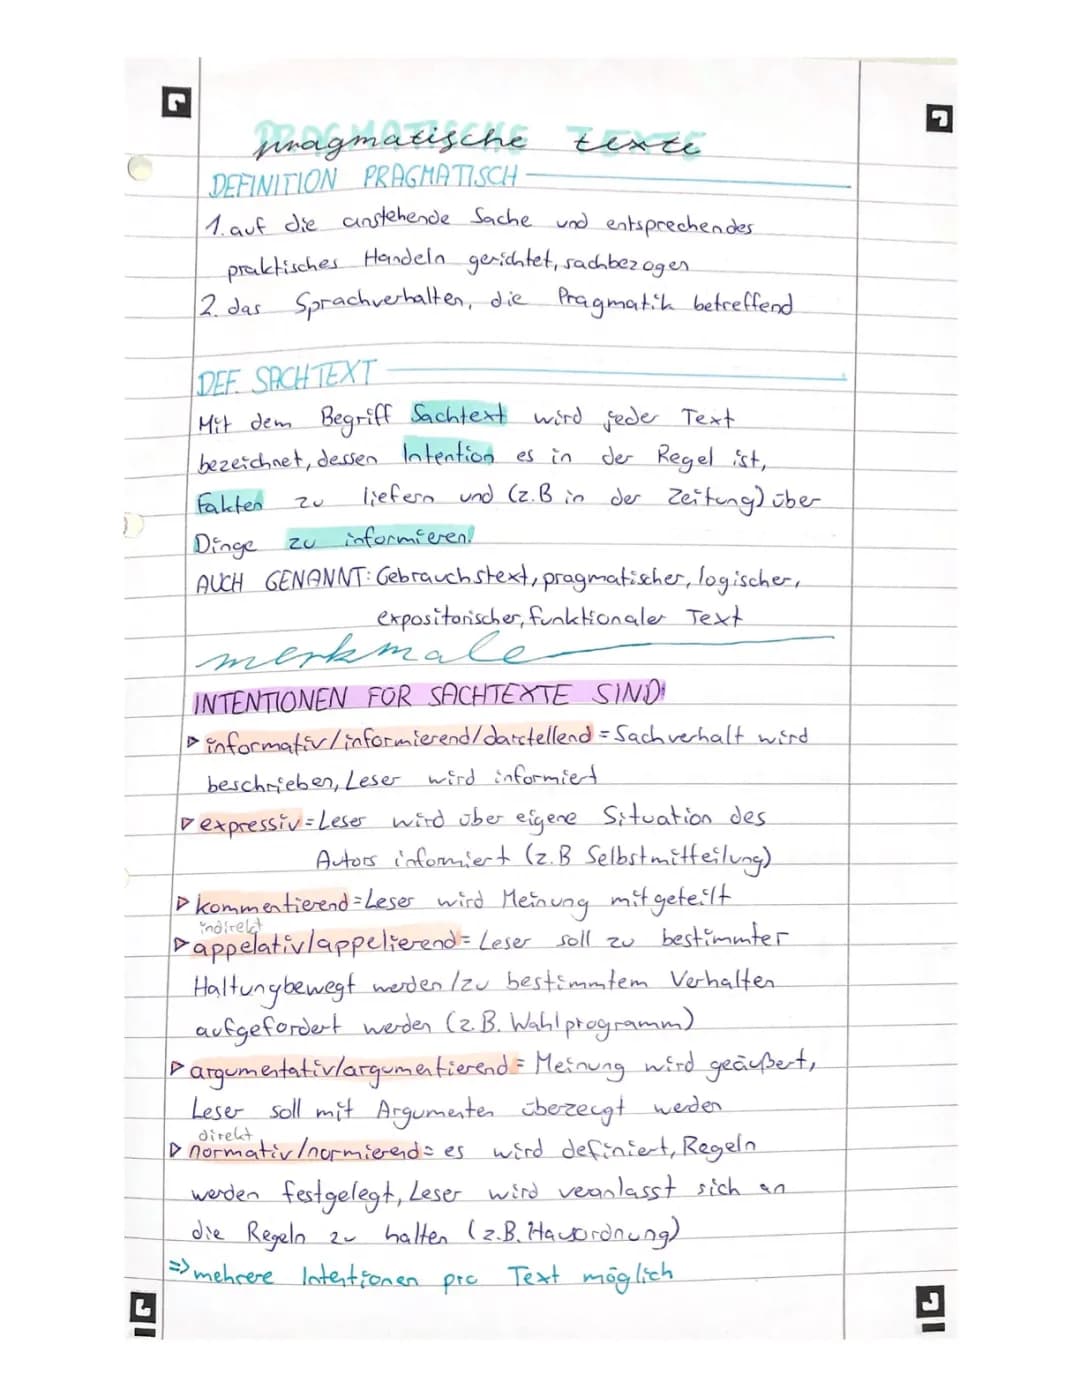 PRAGMATISCHE TEXTE
pragmatische texte
DEFINITION PRAGMATISCH
1. auf die anstehende Sache und entsprechendes
praktisches Handeln gerichtet, sachbezogen
2. das Sprachverhalten, die Pragmatik betreffend
DEF. SACHTEXT
Mit dem Begriff Sachtext wird jeder Text
bezeichnet, dessen Intention es in der Regel ist,
Fakten zu liefern und (z.B in der Zeitung) über
Dinge zu informieren!
AUCH GENANNT: Gebrauchstext, pragmatischer, logischer,
expositorischer, funktionaler Text
merkmale
INTENTIONEN FÜR SACHTEXTE SIND:
▷ informativ/informierend/darstellend = Sachverhalt wird
beschrieben, Leser wird informiert
▷ expressiv = Leser wird über eigene Situation des
Autors informiert (z.B Selbstmitteilung)
▷ kommentierend = Leser wird Meinung mitgeteilt
indirekt
▷ appelativ/appelierend = Leser soll zu bestimmter
Haltung bewegt werden /zu bestimmtem Verhalten
aufgefordert werden (z.B. Wahlprogramm)
▷ argumentativ/argumentierend = Meinung wird geäußert,
Leser soll mit Argumenten überzeugt werden
direkt
▷ normativ/normierend = es wird definiert, Regeln
werden festgelegt, Leser wird veranlasst sich an
die Regeln zu halten (z.B. Hausordnung)
=> mehrere Intentionen pro Text möglich